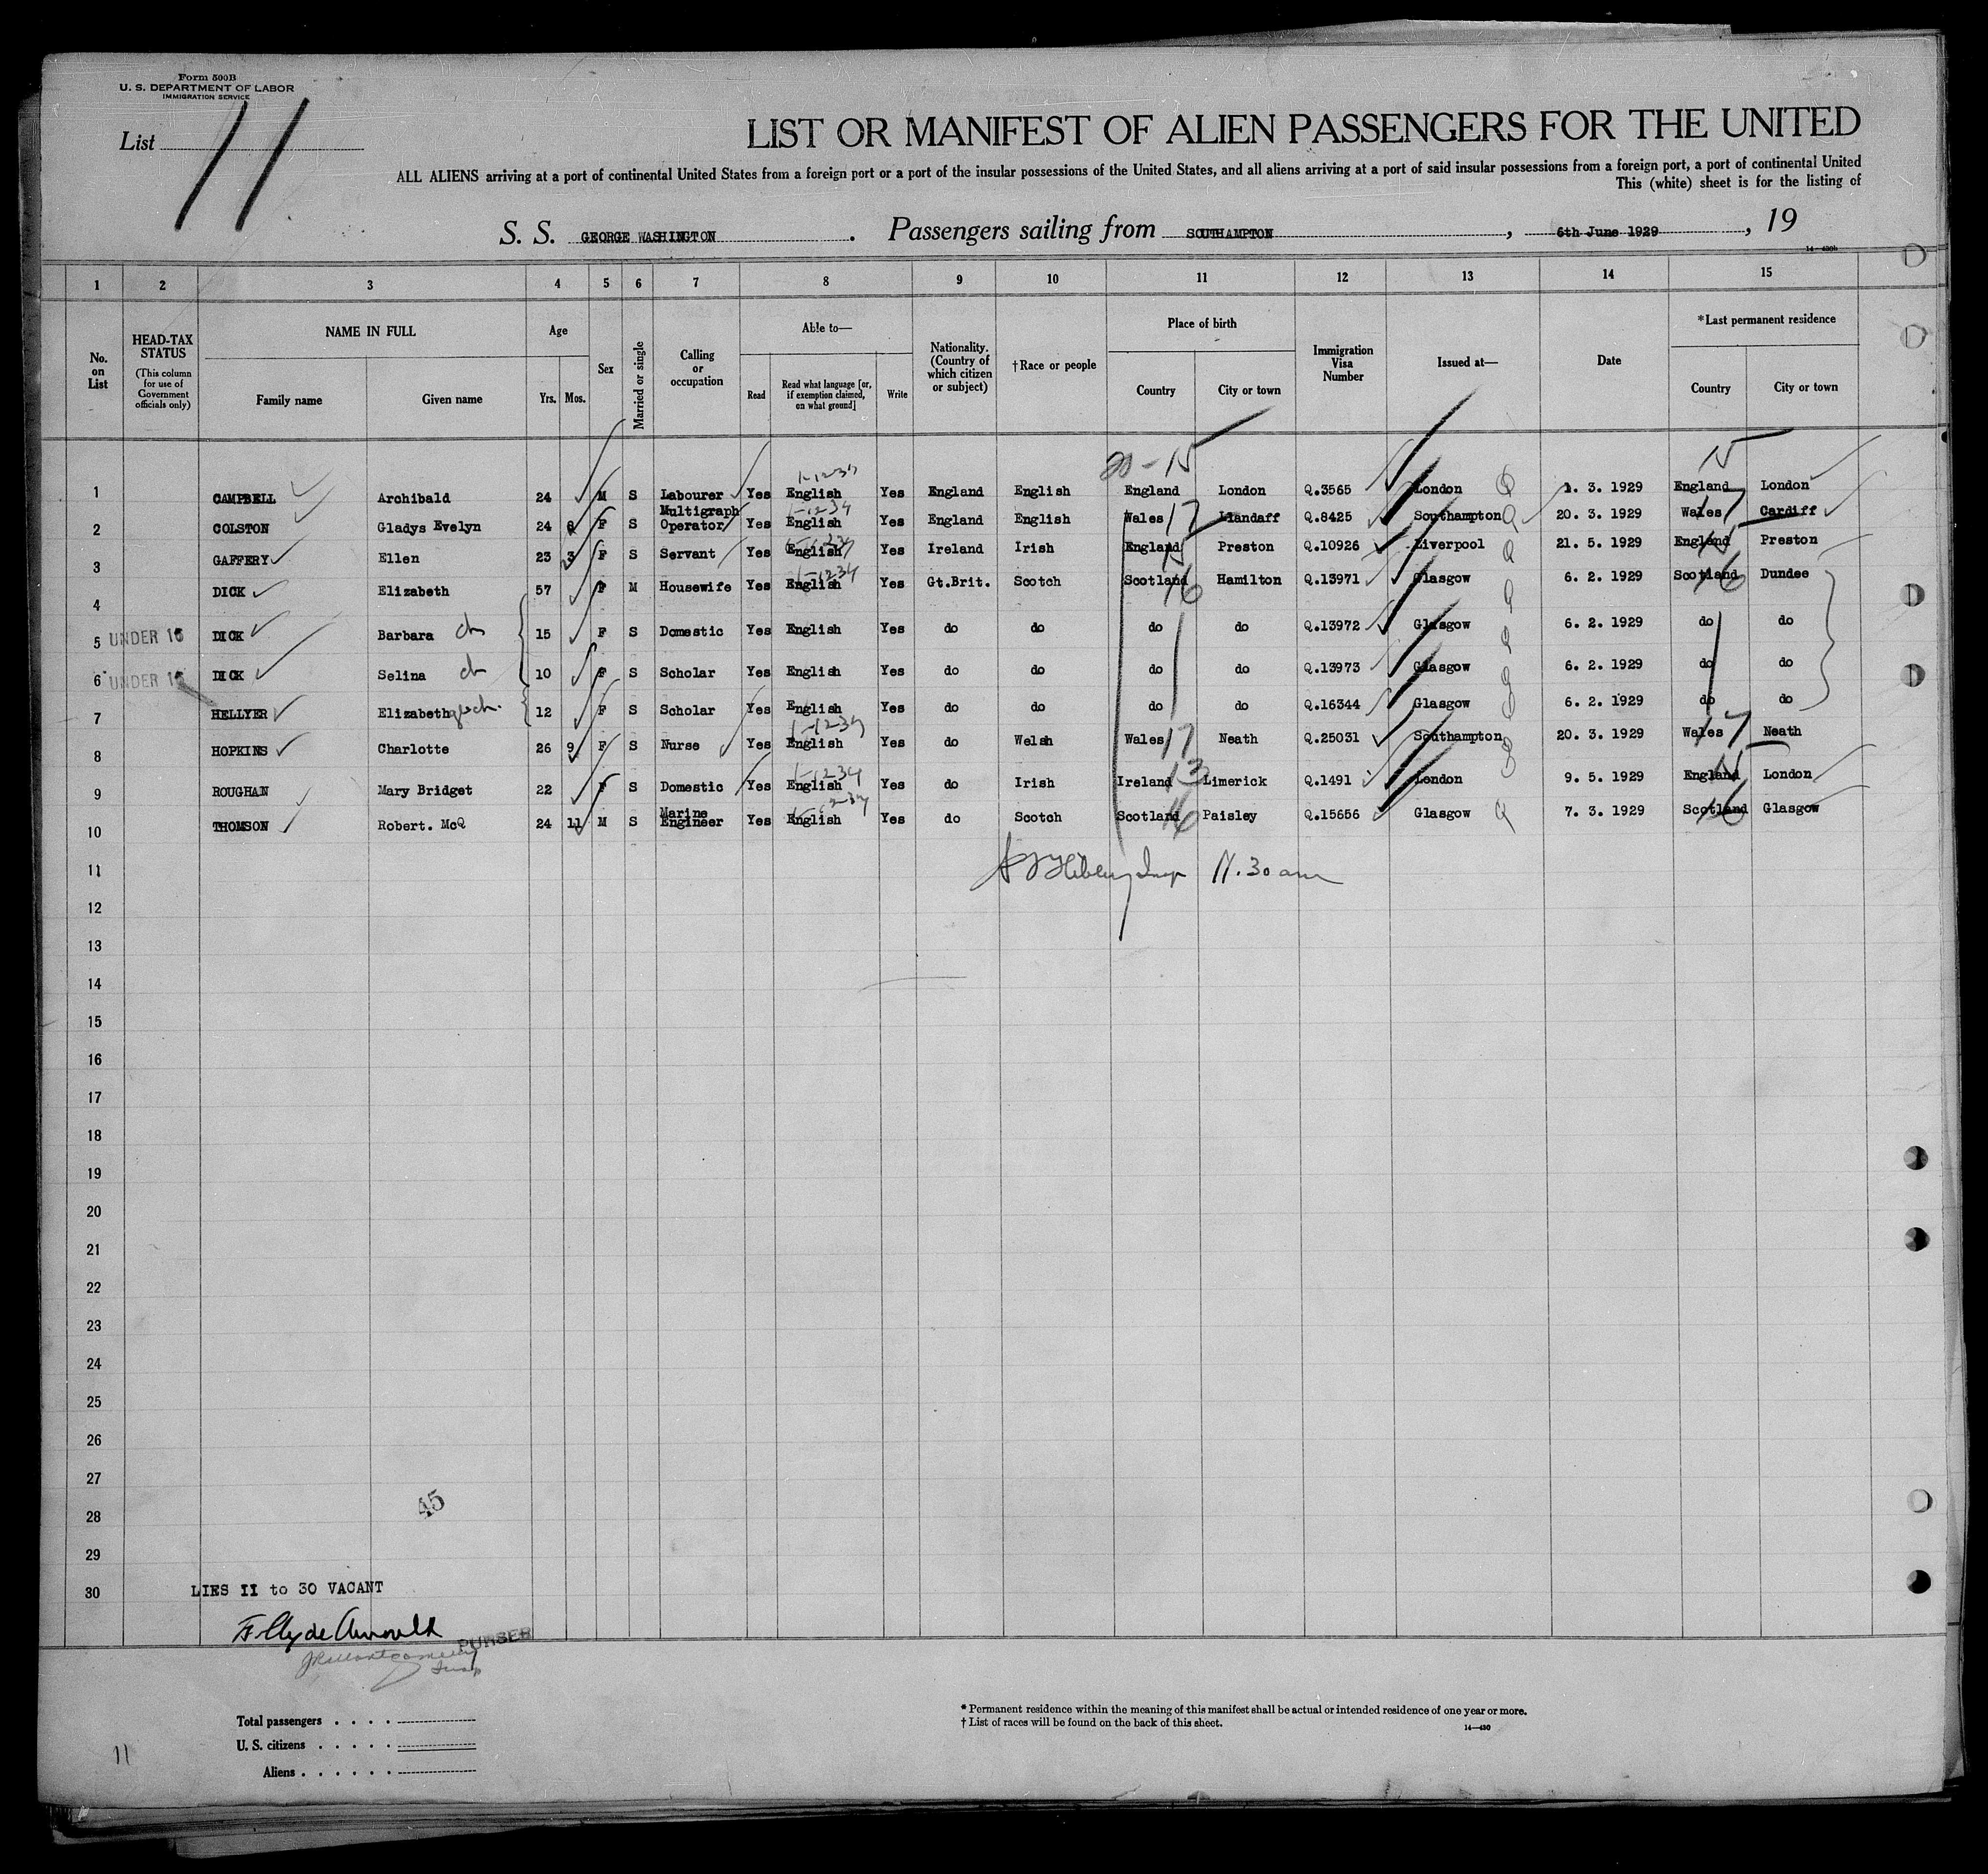 Form 500B
U. S. DEPARTMENT OF LABOR
IMMIGRATION SERVICE
List 11
LIST OR MANIFEST OF ALIEN PASSENGERS FOR THE UNITED
ALL ALIENS arriving at a port of continental United States from a foreign port or a port of the insular possessions of the United States, and all aliens arriving at a port of said insular possessions from a foreign port, a port of continental United
This (white) sheet is for the listing of
S. S. GEORGE WASHINGTON . Passengers sailing from SOUTHAMPTON , 6th June 1929 , 19
14—430b
1 2 3 4 5 6 7 8 9 10 11 12 13 14 15
No. on List
HEAD-TAX STATUS (This column for use of Government officials only)
NAME IN FULL
Family name
Given name
Age
Yrs. Mos.
Sex
Married or single
Calling or occupation
Able to—
Read
Read what language [or, if exemption claimed, on what ground]
Write
Nationality. (Country of which citizen or subject)
†Race or people
Place of birth
Country
City or town
Immigration Visa Number
Issued at—
Date
*Last permanent residence
Country
City or town
20 - 15 15
1 CAMPBELL Archibald 24 M S Labourer Yes English Yes England English England London Q.3565 London 1. 3. 1929 England London
2 COLSTON Gladys Evelyn 24 F S Multigraph Operator Yes English Yes England English Wales 17 Llandaff Q.8425 Southampton 20. 3. 1929 Wales 17 Cardiff
3 GAFFERY Ellen 23 3 F S Servant Yes English Yes Ireland Irish England 15 Preston Q.10926 Liverpool 21. 5. 1929 England 15 Preston
4 DICK Elizabeth 57 F M Housewife Yes English Yes Gt.Brit. Scotch Scotland 16 Hamilton Q.13971 Glasgow 6. 2. 1929 Scotland 16 Dundee
5 UNDER 16 DICK Barbara ch 15 F S Domestic Yes English Yes do do do do Q.13972 Glasgow 6. 2. 1929 do do
6 UNDER 16 DICK Selina ch 10 F S Scholar Yes English Yes do do do do Q.13973 Glasgow 6. 2. 1929 do do
7 HELLYER Elizabeth 12 F S Scholar Yes English Yes do do do do Q.16344 Glasgow 6. 2. 1929 do do
8 HOPKINS Charlotte 26 9 F S Nurse Yes English Yes do Welsh Wales 17 Neath Q.25031 Southampton 20. 3. 1929 Wales 17 Neath
9 ROUGHAN Mary Bridget 22 F S Domestic Yes English Yes do Irish Ireland 13 Limerick Q.1491 London 9. 5. 1929 England 15 London
10 THOMSON Robert. McQ 24 11 M S Marine Engineer Yes English Yes do Scotch Scotland 16 Paisley Q.15656 Glasgow 7. 3. 1929 Scotland 16 Glasgow
11 Insp 11.30 am
12
13
14
15
16
17
18
19
20
21
22
23
24
25
26
27
28
29
30
45
LIES II to 30 VACANT
PURSER
Insp
Total passengers
U. S. citizens
Aliens
11
* Permanent residence within the meaning of this manifest shall be actual or intended residence of one year or more.
† List of races will be found on the back of this sheet.
14—430